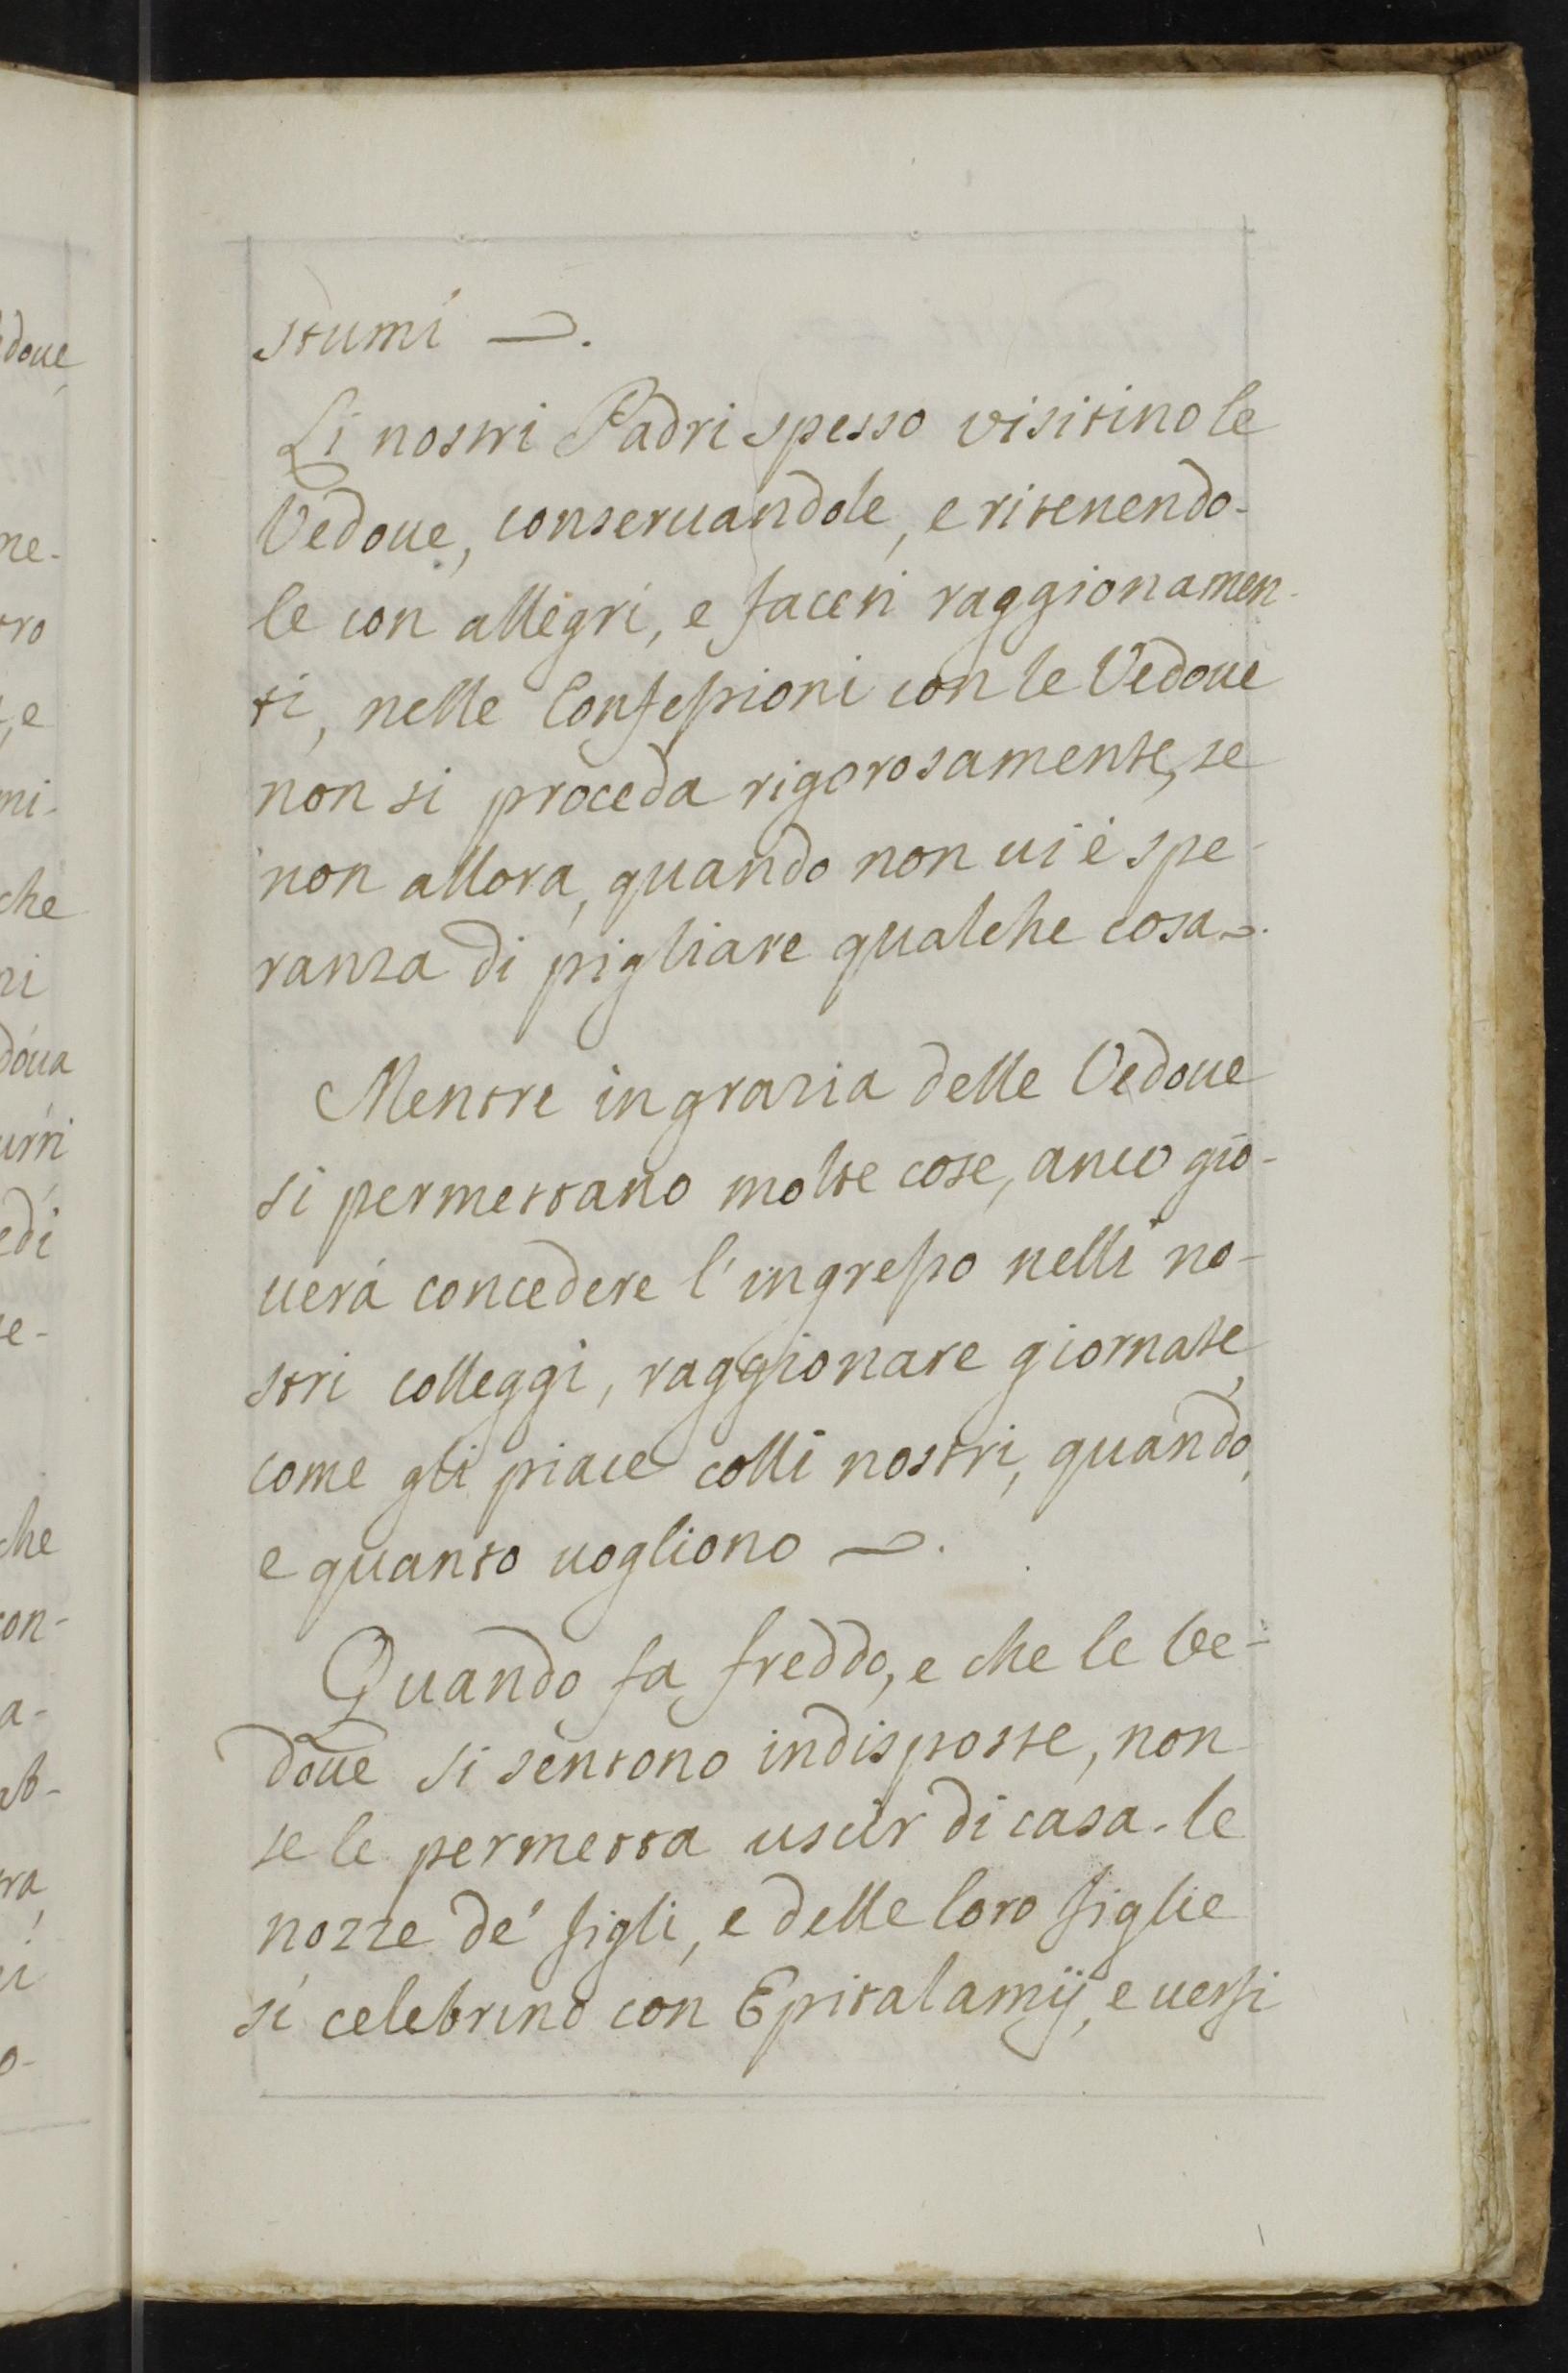 stumi.
Li nostri Padri spesso visitino le
Vedoue, conseruandole, e ritenendo-
le con allegri, e faceti raggionamen-
ti, nelle Confessioni con le Vedoue
non si proceda rigorosamente, se
non allora, quando non ui è spe-
ranza di pigliare qualche cosa.
Mentre in grazia delle Vedoue
si permettano molte cose, anco gio-
uerà concedere l'ingresso nelli no-
stri colleggi, raggionare giornate,
come gli piace colli nostri, quando,
e quanto uogliono.
Quando fa freddo, e che le Ve-
doue si sentono indisposte, non
se le permetta uscir di casa. le
nozze de' figli, e delle loro figlie
si celebrino con Epitalamij, e uersi